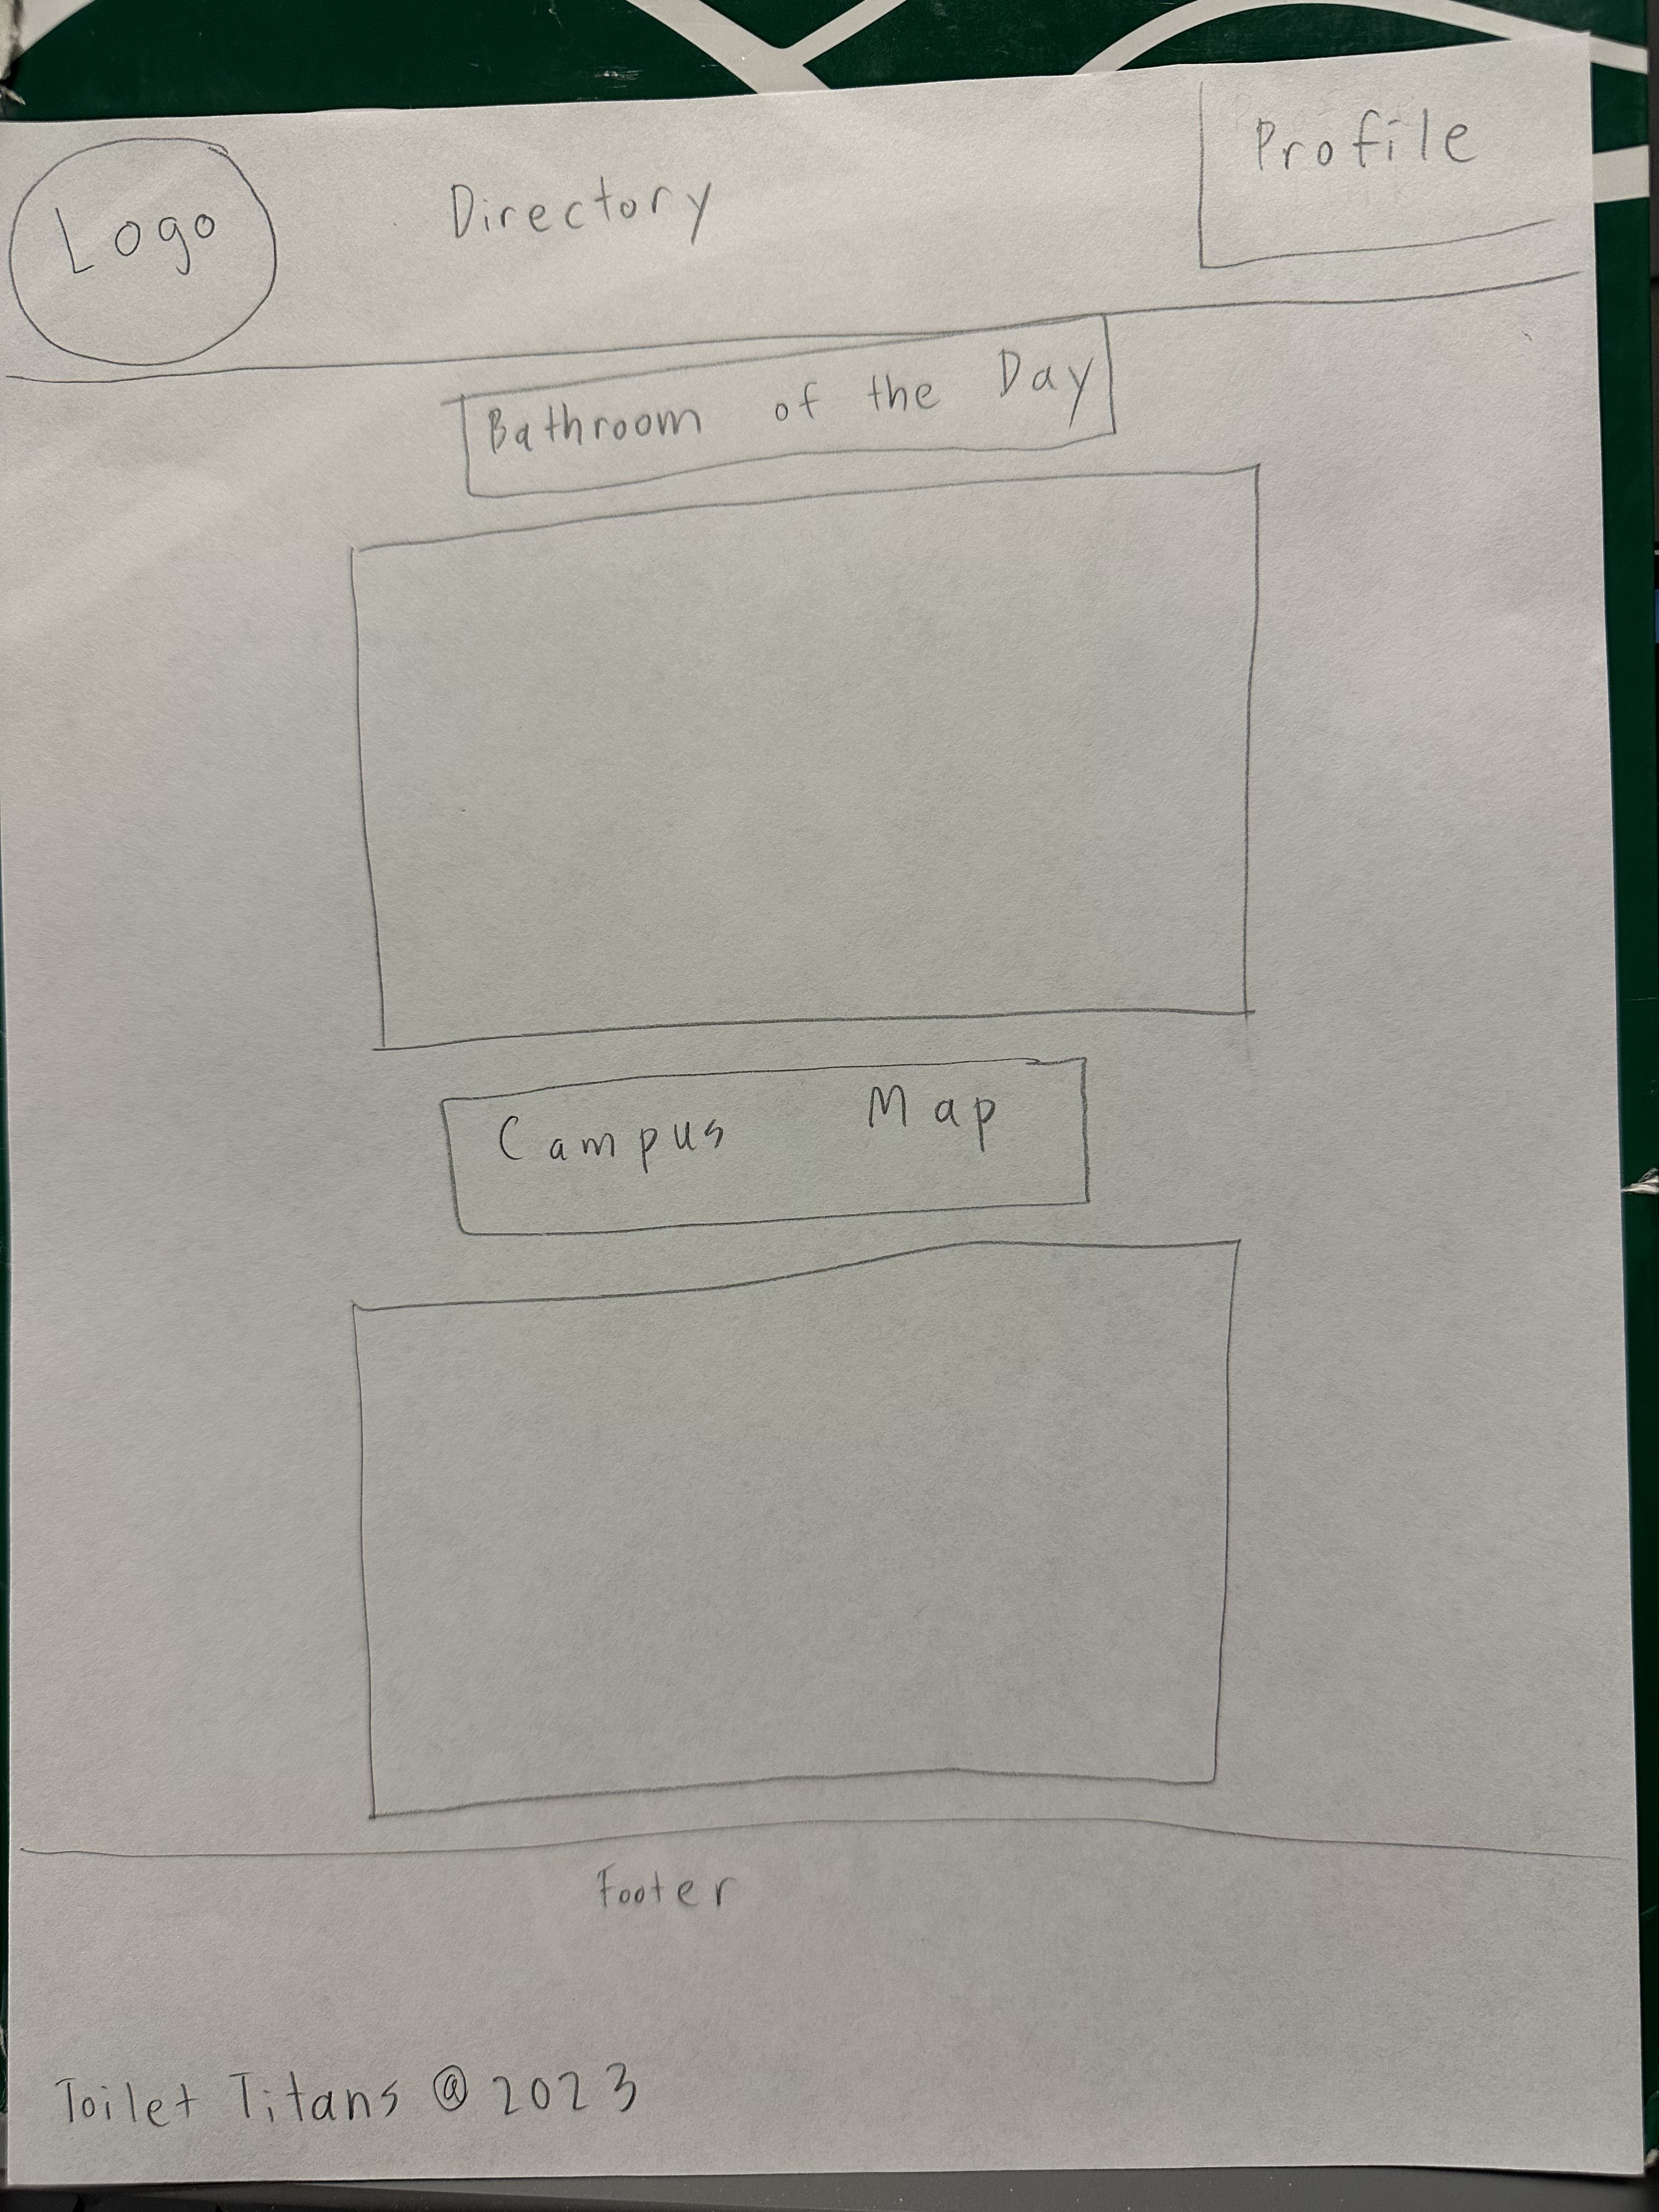 Logo
Directory
Profile
Bathroom of the Day
Campus Map
Footer
Toilet Titans @ 2023